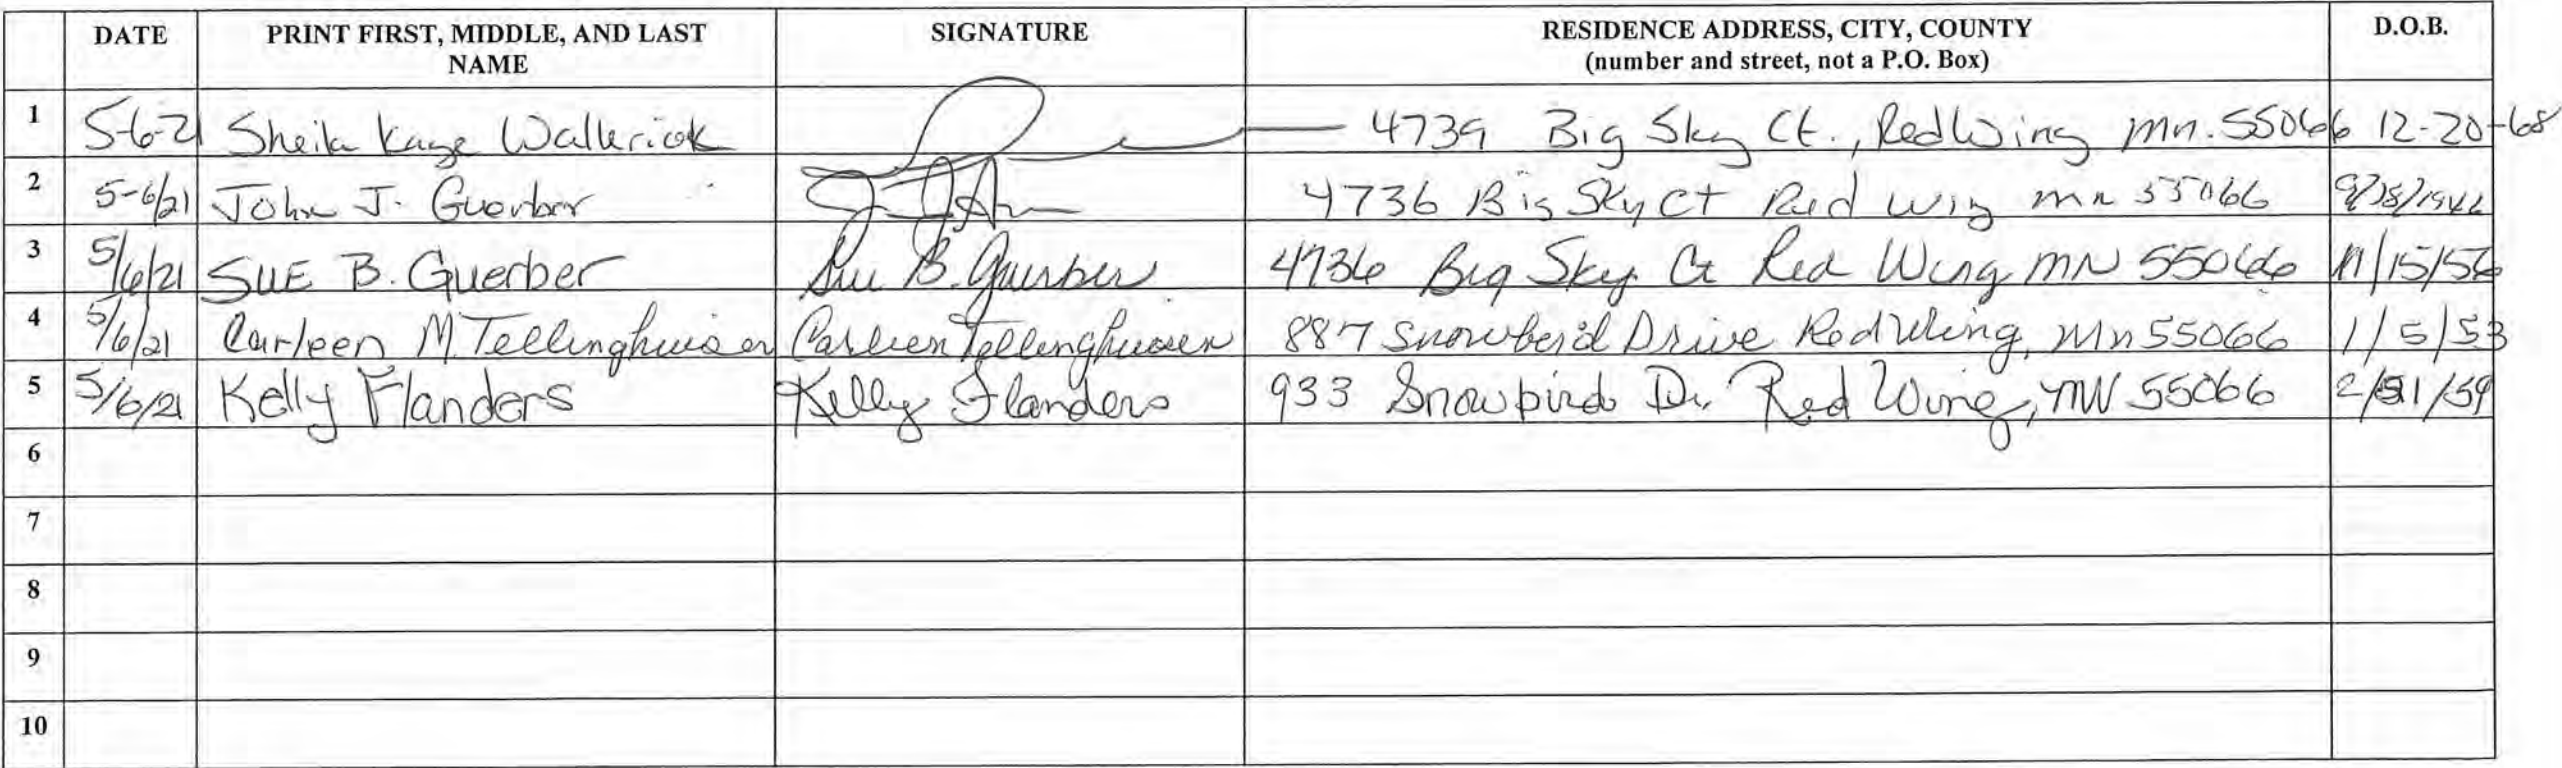 DATE PRINT FIRST, MIDDLE, AND LAST NAME SIGNATURE RESIDENCE ADDRESS, CITY, COUNTY (number and street, not a P.O. Box) D.O.B.
1 5-6-21 Sheila Kaye Wallerick 4739 Big Sky Ct., Red Wing Mn. 55066 12-20-68
2 5-6/21 John J. Guerber 4736 Big Sky Ct Red Wing mn 55066
3 5/6/21 SUE B. Guerber Sue B. Guerber 4736 Big Sky Ct Red Wing MN 55066 11/15/56
4 5/6/21 Carleen M. Tellinghuisen Carleen Tellinghuisen 887 Snowbird Drive Red Wing, Mn 55066 1/5/53
5 5/6/21 Kelly Flanders Kelly Flanders 933 Snowbird Dr. Red Wing, MN 55066
6
7
8
9
10